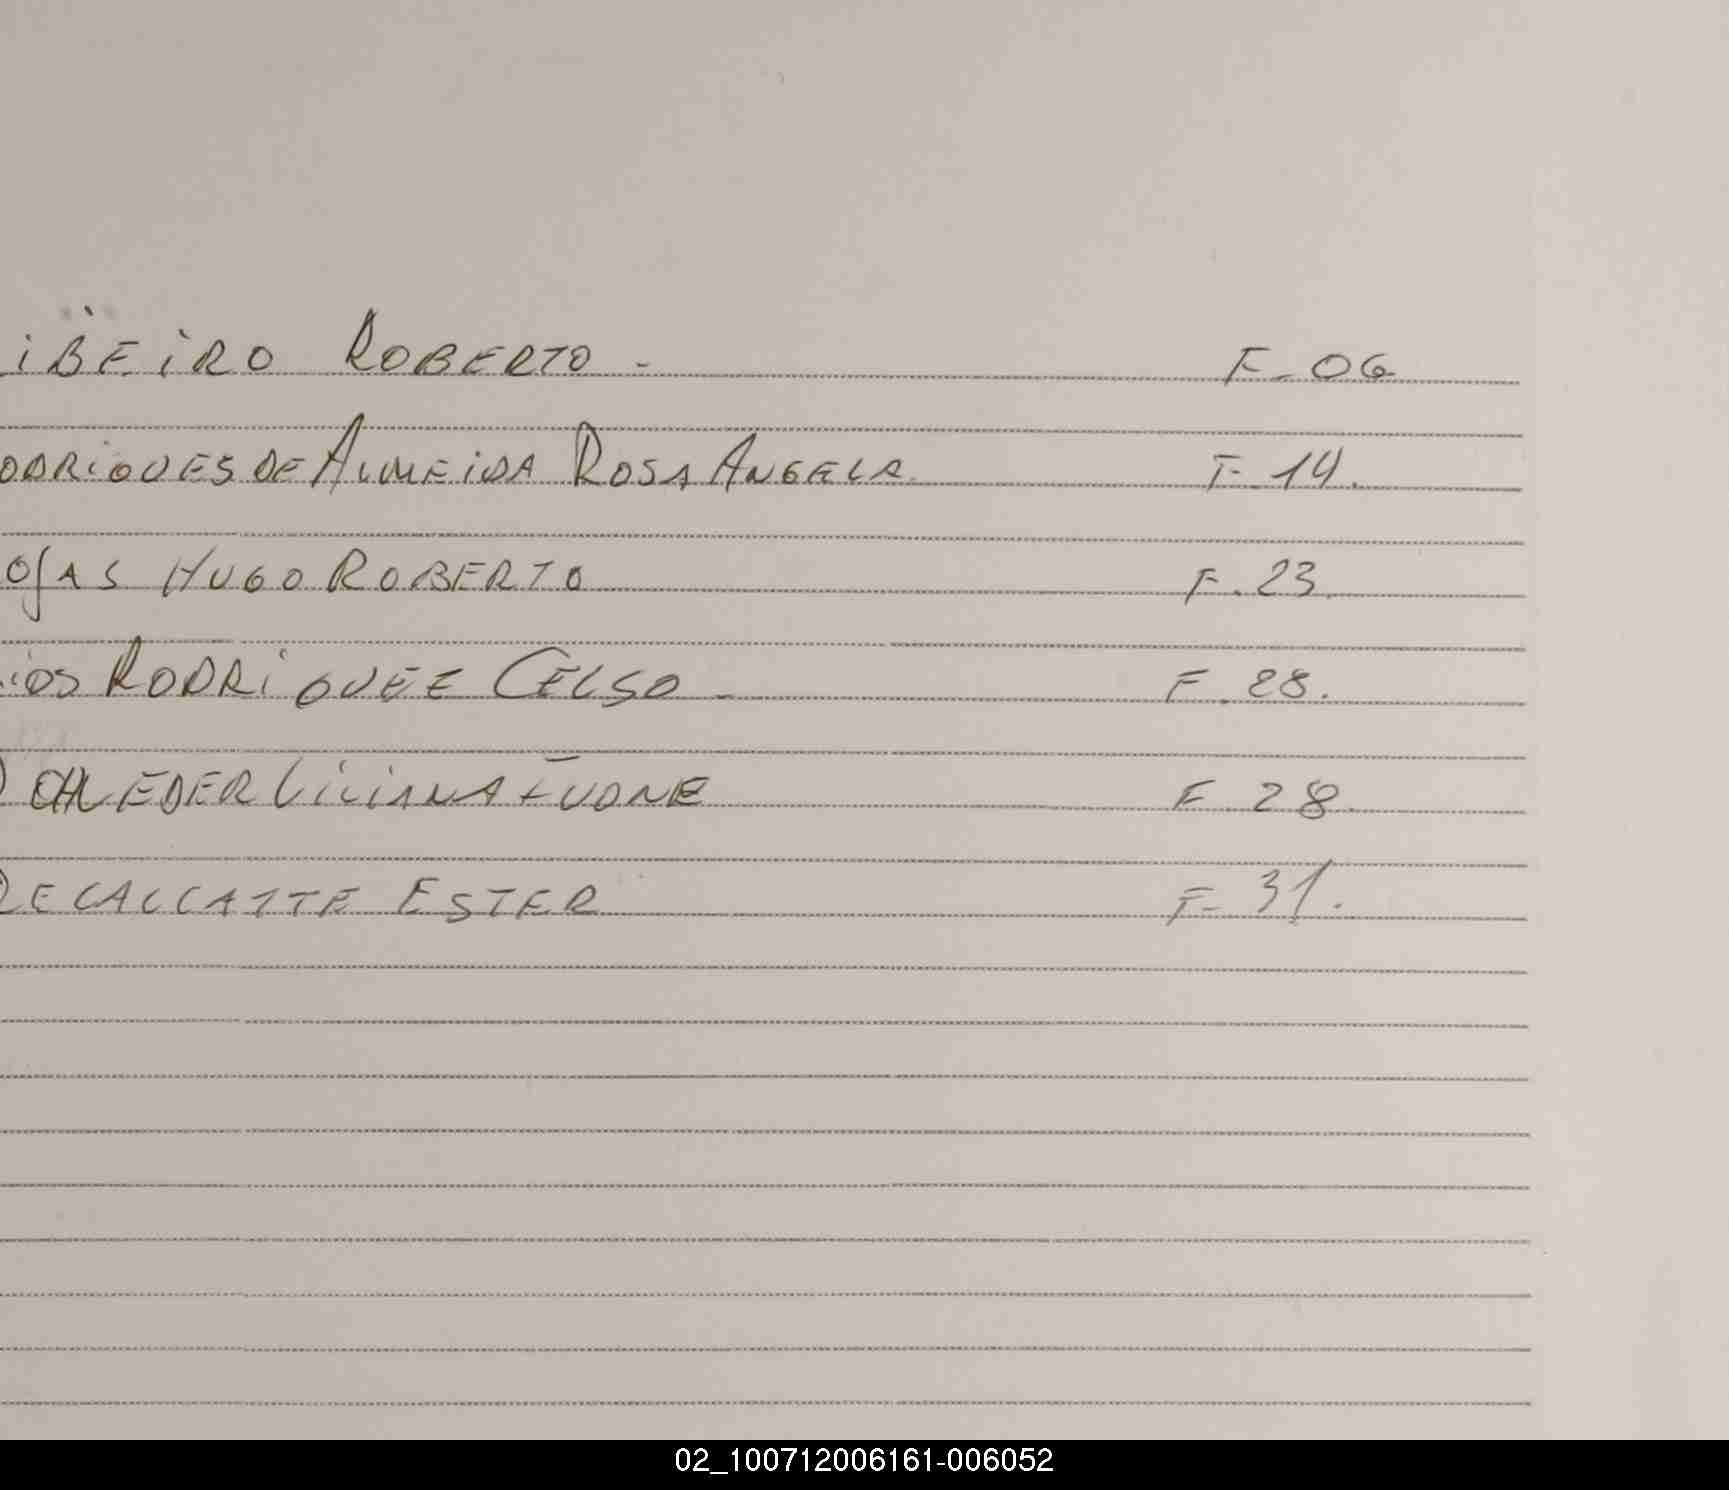 IBEIRO ROBERTO - F-06
ODRIGUES DE ALMEIDA ROSA ANGELA. F-14.
OJAS HUGO ROBERTO F.23.
IOS RODRIGUEZ CELSO - F.28.
EDER LILIANA F.28.
RECALCATTE ESTER F-31.
02_100712006161-006052